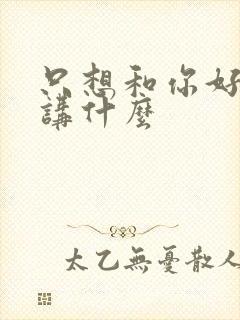 只想和你好
講什麼
太乙無憂散人